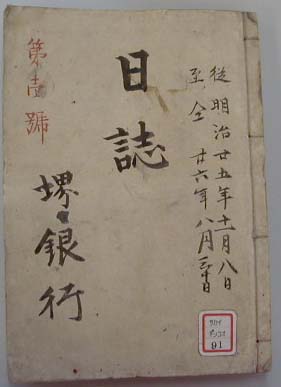 從明治廿五年十一月八日
至仝廿六年八月三十日
日誌
第壹號
堺銀行
91